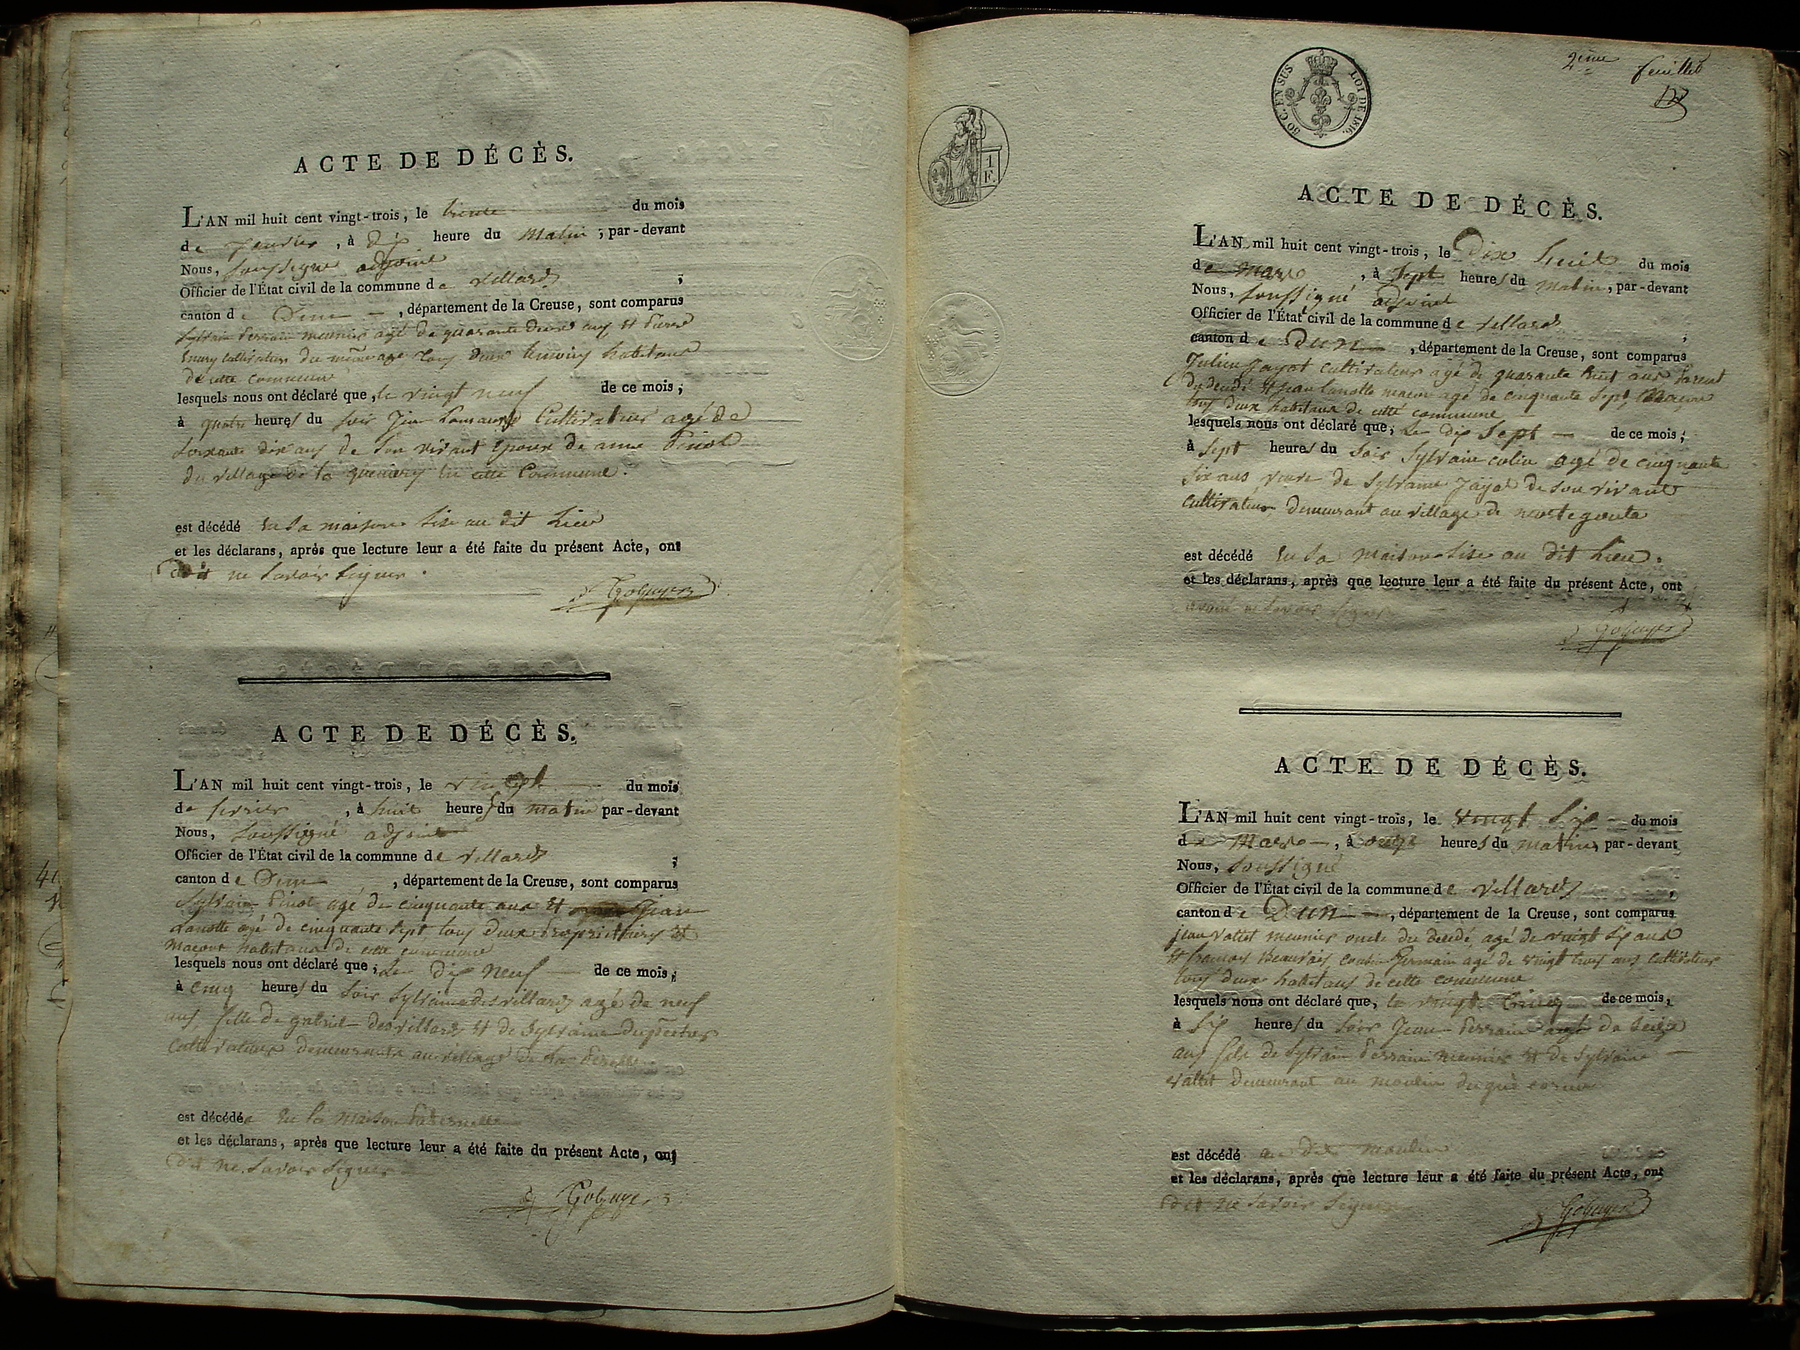 ACTE DE DÉCÈS.
L'AN mil huit cent vingt-trois, le trente du mois
de janvier, à dix heure du matin, par-devant
Nous, soussigné adjoint
Officier de l'État civil de la commune de villard ;
canton de Dun, département de la Creuse, sont comparus
Sylvain Perrain meunier agé de quarante deux ans et Pierre
cultivateur du même age tous deux temoins habitans
de cette commune
lesquels nous ont déclaré que, le vingt neuf de ce mois ;
à quatre heures du soir Jean cultivateur agé de
soixante dix ans de son vivant époux de anne Pinot
du village de la en cette commune.
est décédé en sa maison sise au dit lieu
et les déclarans, après que lecture leur a été faite du présent Acte, ont
dit ne savoir signer.
ACTE DE DÉCÈS.
L'AN mil huit cent vingt-trois, le vingt du mois
de fevrier, à huit heures du matin par-devant
Nous, soussigné adjoint
Officier de l'État civil de la commune de villard ;
canton de Dun, département de la Creuse, sont comparus
Sylvain Pinot agé de cinquante ans et Jean
Lanotte agé de cinquante sept tous deux propriétaires et
macons habitans de cette commune
lesquels nous ont déclaré que, le dix neuf de ce mois ;
à cinq heures du soir Sylvaine desvillard agé de neuf
ans, fille de gabriel desvillard et de Sylvaine
cultivateurs demeurants au village de la
est décédée en la maison paternelle
et les déclarans, après que lecture leur a été faite du présent Acte, ont
dit ne savoir signer
2ème feuillet
30 C. EN SUS LOI DE 1816.
1 F.
ACTE DE DÉCÈS.
L'AN mil huit cent vingt-trois, le Dix huit du mois
de Mars, à Sept heures du matin, par-devant
Nous, soussigné adjoint
Officier de l'État civil de la commune de villard ;
canton de Dun, département de la Creuse, sont comparus
Julien Jayot cultivateur agé de quarante huit ans parent
du decedé et jean Lanotte macon agé de cinquante sept
tous deux habitans de cette commune
lesquels nous ont déclaré que, le dix Sept de ce mois ;
à Sept heures du soir Sylvain colin agé de cinquante
six ans veuve de Sylvaine Jayot de son vivant
cultivateur demeurant au village de
est décédé en sa maison sise au dit lieu.
et les déclarans, après que lecture leur a été faite du présent Acte, ont
ne savoir signer
ACTE DE DÉCÈS.
L'AN mil huit cent vingt-trois, le vingt six du mois
de Mars, à onze heures du matin, par-devant
Nous, soussigné
Officier de l'État civil de la commune de villard ,
canton de Dun, département de la Creuse, sont comparus
jean vallet meunier oncle du decedé, agé de vingt six ans
et francois Beauvais cousin germain agé de vingt trois ans cultivateur
tous deux habitans de cette commune
lesquels nous ont déclaré que, le vingt cinq de ce mois,
à six heures du soir Jean Perrain agé de seize
ans fils de Sylvain Perrain meunier et de Sylvaine
vallet demeurant au moulin du
est décédé au dit moulin
et les déclarans, après que lecture leur a été faite du présent Acte, ont
dit ne savoir signer